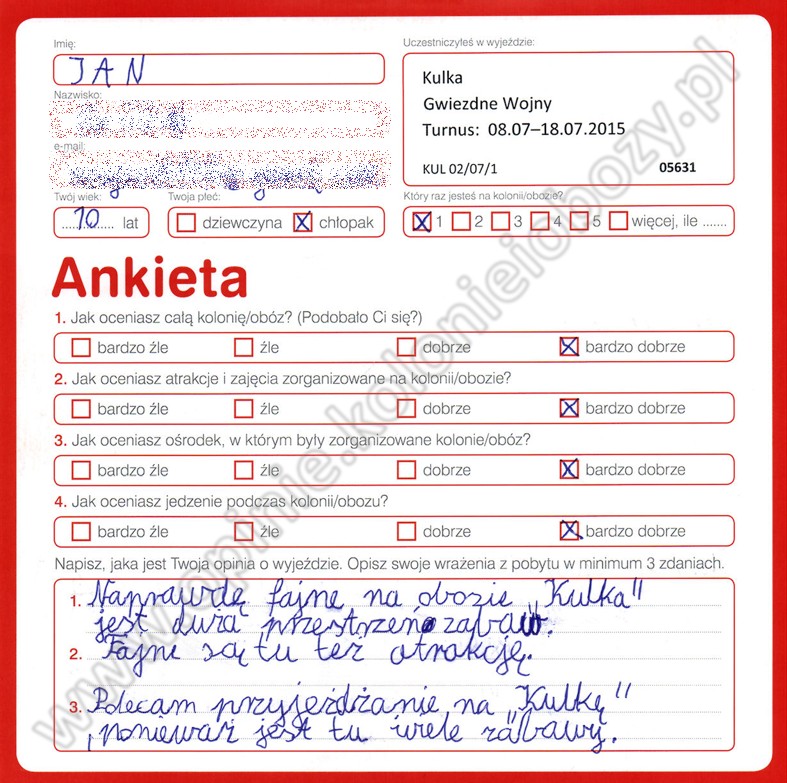 Imię:
JAN
Nazwisko:
e-mail:
Twój wiek:
10 lat
Twoja płeć:
dziewczyna X chłopak
Uczestniczyłeś w wyjeździe:
Kulka
Gwiezdne Wojny
Turnus: 08.07–18.07.2015
KUL 02/07/1 05631
Który raz jesteś na kolonii/obozie?
X 1 2 3 4 5 więcej, ile .......
Ankieta
1. Jak oceniasz całą kolonię/obóz? (Podobało Ci się?)
bardzo źle źle dobrze X bardzo dobrze
2. Jak oceniasz atrakcje i zajęcia zorganizowane na kolonii/obozie?
bardzo źle źle dobrze X bardzo dobrze
3. Jak oceniasz ośrodek, w którym były zorganizowane kolonie/obóz?
bardzo źle źle dobrze X bardzo dobrze
4. Jak oceniasz jedzenie podczas kolonii/obozu?
bardzo źle źle dobrze X bardzo dobrze
Napisz, jaka jest Twoja opinia o wyjeździe. Opisz swoje wrażenia z pobytu w minimum 3 zdaniach.
1. Naprawdę fajne na obozie „Kulka"
jest duża przestrzeń zabaw.
2. Fajne są tu też atrakcję.
3. Polecam przyjeżdżanie na „Kulkę"
, ponieważ jest tu wiele zabawy.
www.opinie.kolonieiobozy.pl